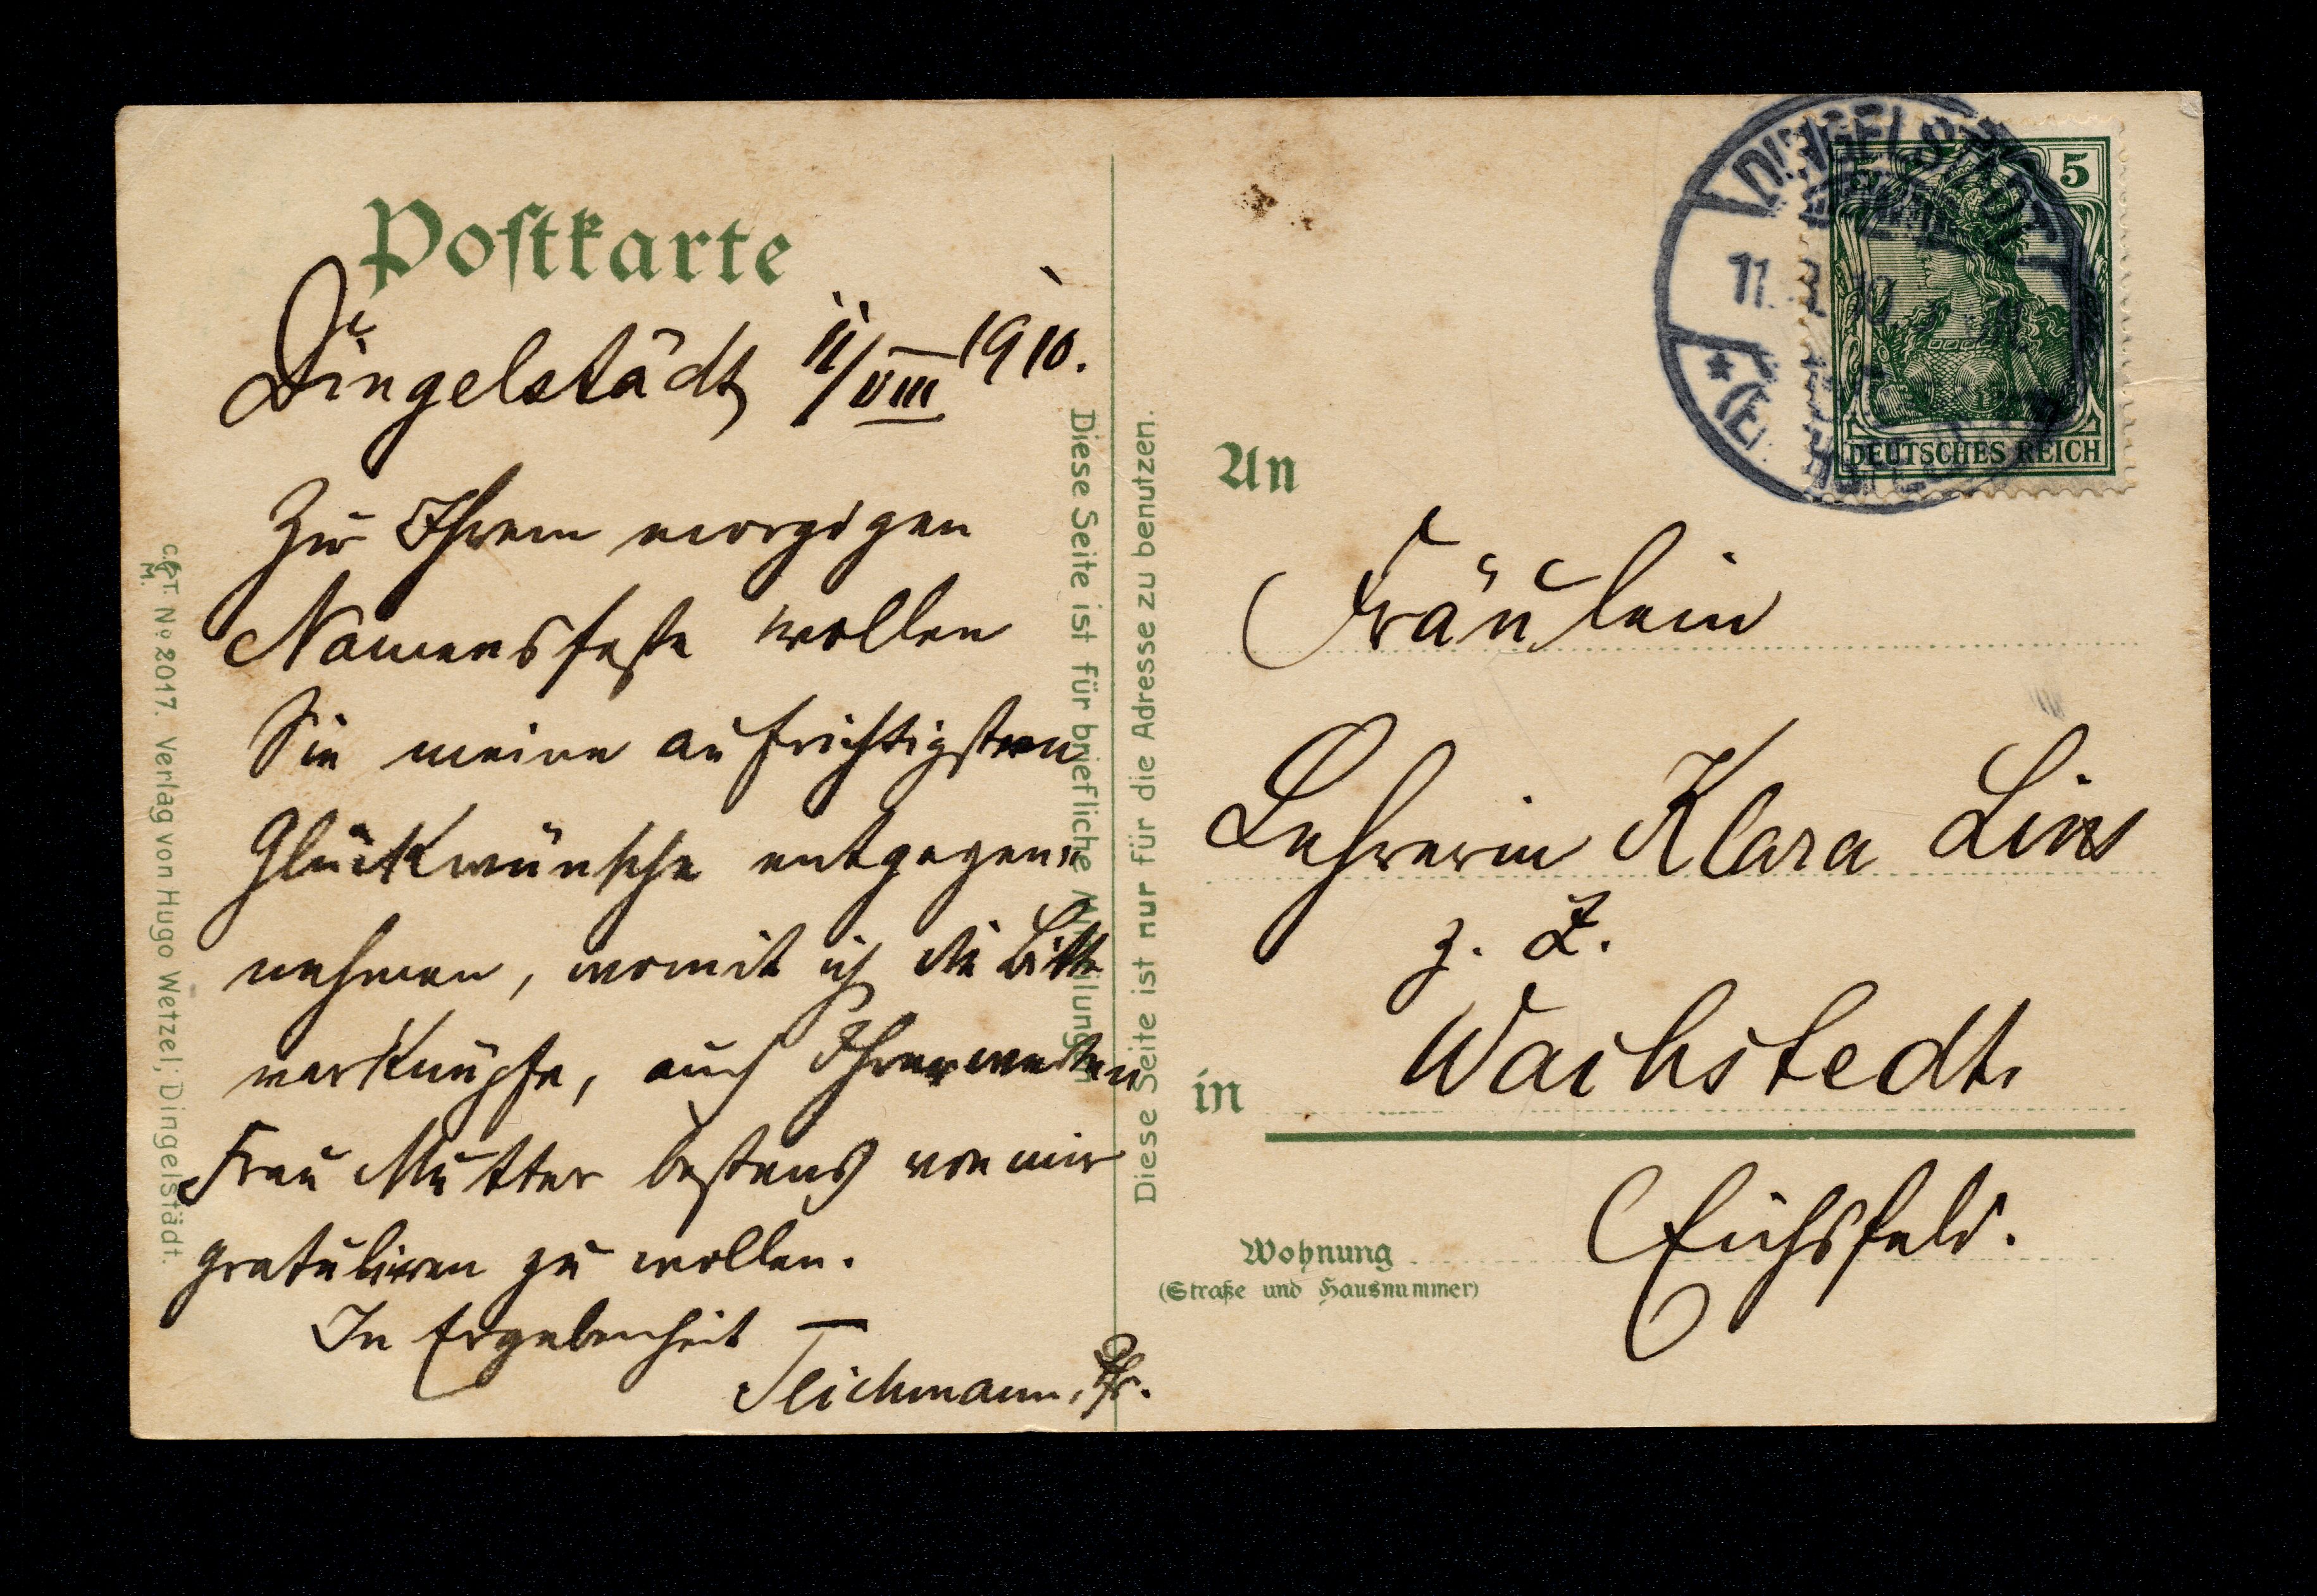 Postkarte
Dingelstädt, 11/VIII 1910.
Zu Ihrem morgigen
Namensfeste wollen
Sie meine aufrichtigsten
Glückwünsche entgegen
nehmen, womit ich die Bitte
verknüpfe, auch Ihrer werten
Frau Mutter bestens von mir
gratuliren zu wollen.
In Ergebenheit
Teichmann, Pfr.
No 2017. Verlag von Hugo Wetzel, Dingelstädt.
Diese Seite ist für briefliche Mitteilungen
Diese Seite ist nur für die Adresse zu benutzen.
DINGELSTÄDT
11. 8. 10
DEUTSCHES REICH
5
An
Fräulein
Lehrerin Klara Lins
z. Z.
in Wachstedt.
Eichsfeld.
Wohnung
(Straße und Hausnummer)